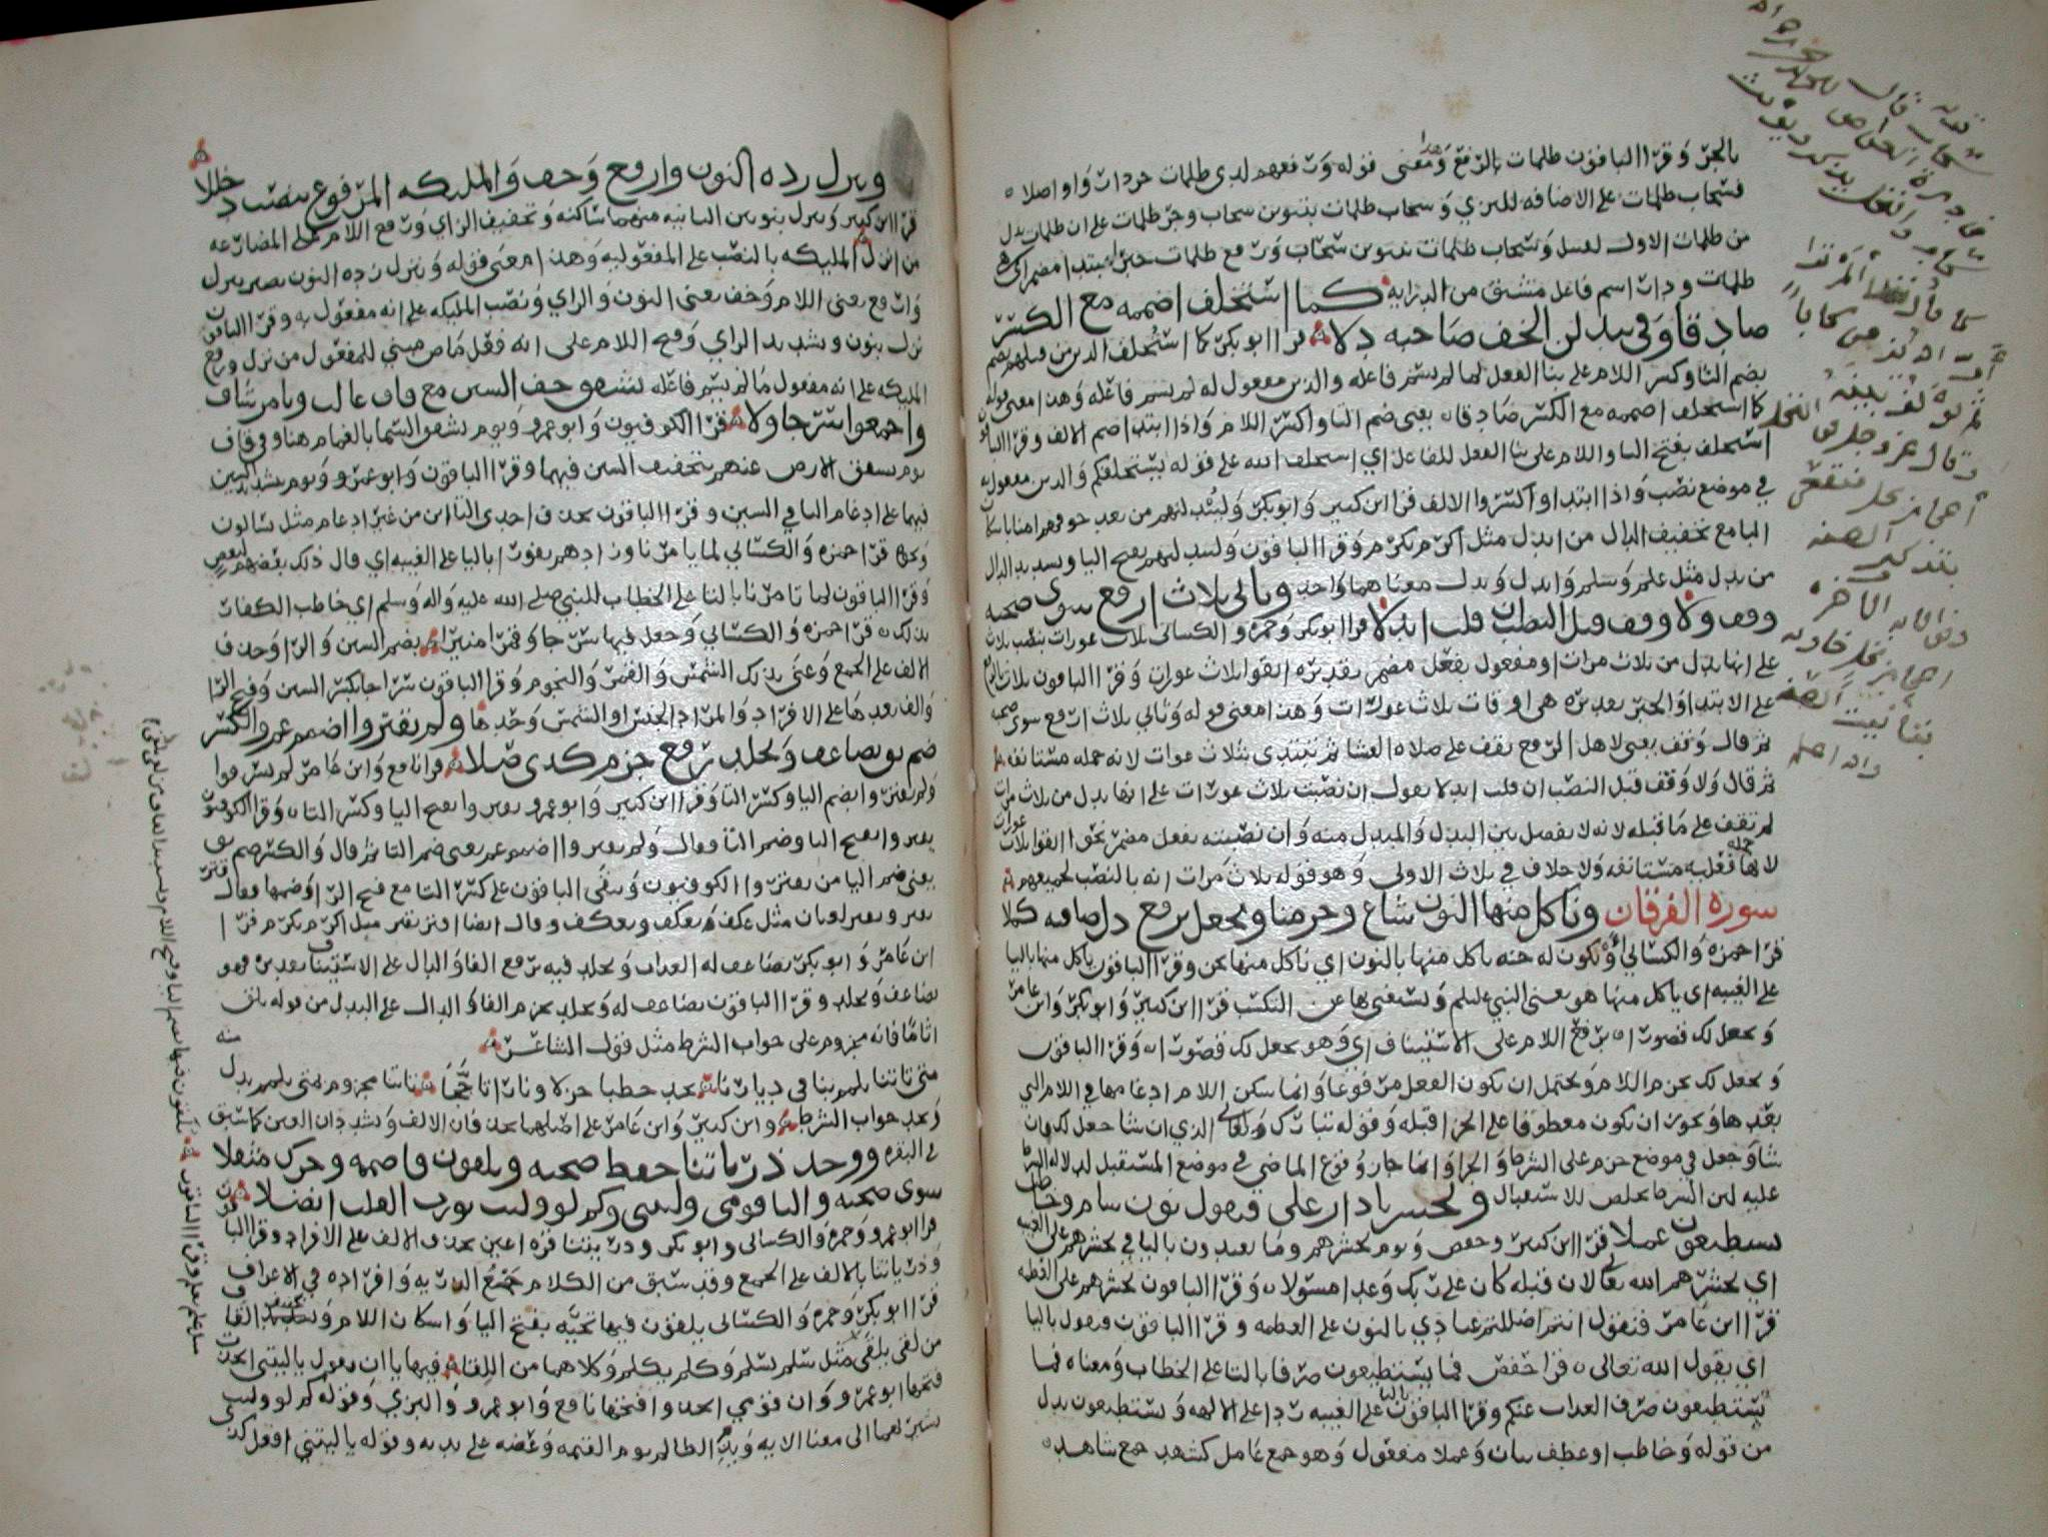 بالجر وقرا الباقون ظلمات بالرفع وهذا معنى قوله ورفعهم لدى ظلمات جر دار واو اصلا
فسحاب ظلمات على الاضافه للبزي وسحاب ظلمات بتنوين سحاب وجر ظلمات على ان ظلمات بدل
من ظلمات الاول لقنبل وسحاب ظلمات بتنوين سحاب ورفع ظلمات خبر مبتدا مضمر اي هي
ظلمات ودار اسم فاعل مشتق من الدرايه كما استخلف اضممه مع الكسر
صادقا وفي يبدلن الخف صاحبه دلا قرا ابو بكر كما استخلف الذين من قبلهم بضم
بضم التا وكسر اللام على بنا الفعل لما لم يسم فاعله والذين مفعول له لم يسم فاعله وهذا معنى قوله
كما استخلف اضممه مع الكسر صادقا يعني ضم التا واكسر اللام واذا ابتدا ضم الالف وقرا الباقون
استخلف بفتح التا واللام على بنا الفعل للفاعل اي استخلف الله على قوله ليستخلفنكم والذين مفعول به
في موضع نصب واذا ابتداوا كسروا الالف قرا ابن كثير وابو بكر وليبدلنهم من بعد خوفهم امنا باسكان
البا مع تخفيف الدال من ابدل مثل اكرم يكرم وقرا الباقون وليبدلنهم بفتح البا وتشديد الدال
من بدل مثل علم وسلم وابدل وبدل معناهما واحد وثاني ثلاث ارفع سوى صحبه
ووقف ولا وقف قبل النصب ان قلت ابدلا قرا ابو بكر وحمزه والكسائي ثلاث عورات بنصب ثلاث
على انها بدل من ثلاث مرات او مفعول بفعل مضمر تقديره اتقوا ثلاث عورات وقرا الباقون ثلاث بالرفع
على الابتدا والخبر تقديره هي اوقات ثلاث عورات وهذا معنى قوله وثاني ثلاث ارفع سوى صحبه
ثم قال وقف يعني لاهل الرفع يقف على صلاه العشا ثم يبتدي بثلاث عورات لانه جمله مستانفه
ثم قال ولا وقف قبل النصب ان قلت ابدلا يقول ان نصبت ثلاث عورات على انها بدل من ثلاث مرات
لم تقف على ما قبله لانه لا يفصل بين البدل والمبدل منه وان نصبته بفعل مضمر نحو اتقوا ثلاث عورات
لانها جمله فعليه مستانفه ولا خلاف في ثلاث الاولى وهو قوله ثلاث مرات انه بالنصب لجميعهم
سورة الفرقان وناكل منها النون شاع وجزمنا ويجعل برفع دل صافيه كملا
قرا حمزه والكسائي او تكون له جنه ناكل منها بالنون اي ناكل منها نحن وقرا الباقون ياكل منها باليا
على الغيبه اي ياكل منها هو يعني النبي عليلم وليستغني بها عن التكسب قرا ابن كثير وابو بكر وابن عامر
ويجعل لك قصورا برفع اللام على الاستيناف اي وهو يجعل لك قصورا وقرا الباقون
ويجعل لك بجزم اللام ويحتمل ان يكون الفعل مرفوعا وانما سكن اللام ادغامها في اللام التي
بعدها ويجوز ان يكون معطوفا على الجزا قبله وقوله تبارك وتعالى الذي ان شا جعل لك فان
شا وجعل في موضع جزم على الشرط والجزا وانما جاز وقوع الماضي في موضع المستقبل لدلاله الشرط
عليه لان الشرط يخلص للاستقبال ونحشر يا دار على فيقول نون شام وخاطب
تستطيعون عملا قرا ابن كثير وحفص ويوم يحشرهم وما يعبدون باليا في يحشرهم على الغيبه
اي يحشرهم الله تعالى لان قبله كان على ربك وعدا مسئولا وقرا الباقون نحشرهم على العظمه
قرا ابن عامر فنقول انتم اضللتم عبادي بالنون على العظمه وقرا الباقون فيقول باليا
اي يقول الله تعالى قرا حفص فما تستطيعون صرفا بالتا على الخطاب ومعناه فما
تستطيعون صرف العذاب عنكم وقرا الباقون باليا على الغيبه ردا على الالهه وتستطيعون بدل
من قوله وخاطب او عطف بيان وعملا مفعول وهو جمع عامل كشهد جمع شاهد
قوله
سحاب قال
ثم قال تعالى الم تر
ان الله يزجي سحابا
ثم يؤلف بينه
وقال عز وجل في النخل
اعجاز نخل منقعر
بتذكير الصفه
وفي الايه الاخره
اعجاز نخل خاويه
بتانيث الصفه
والله اعلم
وننزل زده النون وارفع وخف والمليكه المرفوع ينصب دخللا
قرا ابن كثير وننزل بنونين الثانيه منهما ساكنه وتخفيف الزاي ورفع اللام على المضارعه
من انزل المليكه بالنصب على المفعوليه وهذا معنى قوله وننزل زده النون يصير ننزل
وارفع يعني اللام وخف يعني النون والزاي ونصب المليكه على انه مفعول به وقرا الباقون
نزل بنون وتشديد الزاي وفتح اللام على انه فعل ماض مبني للمفعول من نزل ورفع
المليكه على انه مفعول ما لم يسم فاعله تشقق خف السين مع قاف غالب ويامر شاف
واجمعوا سرجا ولا قرا الكوفيون وابو عمرو ويوم تشقق السما بالغمام هنا وفي قاف
يوم تشقق الارض عنهم بتخفيف الشين فيهما وقرا الباقون وابو عمرو ويوم بشديد الشين
فيهما على ادغام التا في الشين وقرا الباقون بحذف احدى التاين من غير ادغام مثل تسالون
ونحوها قرا حمزه والكسائي لما يامرنا وزادهم نفورا باليا على الغيبه اي قال ذلك بعضهم لبعض
وقرا الباقون لما تامرنا بالتا على الخطاب للنبي صلى الله عليه واله وسلم اي خاطب الكفار
بذلك قرا حمزه والكسائي وجعل فيها سرجا وقمرا منيرا بضم السين والرا وحذف
الالف على الجمع وعنى بذلك الشمس والقمر والنجوم وقرا الباقون سراجا بكسر السين وفتح الرا
والف بعدها على الافراد والمراد الجنس او الشمس وحدها ولم يقتروا اضمم عم والكسر
ضم ثق يضاعف ويخلد رفع جزم كذي صلا قرا نافع وابن عامر لم يسرفوا
ولم يقتروا بضم اليا وكسر التا وقرا ابن كثير وابو عمرو يقتروا بفتح اليا وكسر التا وقرا الكوفيون
يقتروا بفتح اليا وضم التا فقال ولم يقتروا اضمم عم يعني ضم التا ثم قال والكسر ضم ثق
يعني ضم اليا من يقتروا الكوفيون وبقي الباقون على كسر التا مع فتح الرا وضمها فقال قتر
يقتر ويقتر لغتان مثل عكف يعكف ويعكف وقال ايضا اقتر يقتر مثل اكرم يكرم قرا
ابن عامر وابو بكر يضاعف له العذاب ويخلد فيه برفع الفا والدال على الاستيناف تقديره فهو
يضاعف ويخلد وقرا الباقون يضاعف له ويخلد بجزم الفا والدال على البدل من قوله يلق
اثاما فانه مجزوم على جواب الشرط مثل قول الشاعر
متى تاتنا تلمم بنا في ديارنا تجد حطبا جزلا ونارا تاججا فتاتنا مجزوم بمتى تلمم بدل منه
وتجد جواب الشرط وابن كثير وابن عامر على اصلهما بحذفان الالف ويشددان العين كما سبق
في البقره ووحد ذرياتنا حفظ صحبه ويلقون فاضممه وحرك مثقلا
سوى صحبه واليا قومي وليتني وكم لو وليت تورث القلب انصلا
قرا ابو عمرو وحمزه والكسائي وابو بكر وذريتنا قره اعين بحذف الالف على الافراد وقرا الباقون
وذرياتنا بالالف على الجمع وقد سبق من الكلام جمع الذريه وافراده في الاعراف
قرا ابو بكر وحمزه والكسائي يلقون فيها تحيه بفتح اليا واسكان اللام وتخفيف القاف
من لقي يلقى مثل سلم يسلم وكلم يكلم وكلاهما من اللقا فيها يا ان يقول يا ليتني اتخذت
فتحها ابو عمرو وان قومي اتخذوا فتحها نافع وابو عمرو والبزي وقوله كم لو وليت
يشير بهما الى معنى الايه وندم الظالم يوم القيمه وعضه على يديه وقوله يا ليتني افعل كذي
يلقون فيها بضم اليا وفتح اللام وتشديد القاف من لقي يلقى
مثل علم وقرا الباقون